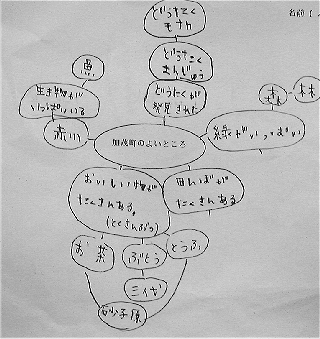 名前(
どうたく
モナカ
どうたく
まんじゅう
どうたくが
発見された
魚
生き物が
いっぱいいる
赤川
加茂町のよいところ
緑がいっぱい
森
林
おいしい物が
たくさんある。
(とくさんぶつ)
田んぼが
たくさんある
お茶
ぶどう
とうふ
三代
砂子原